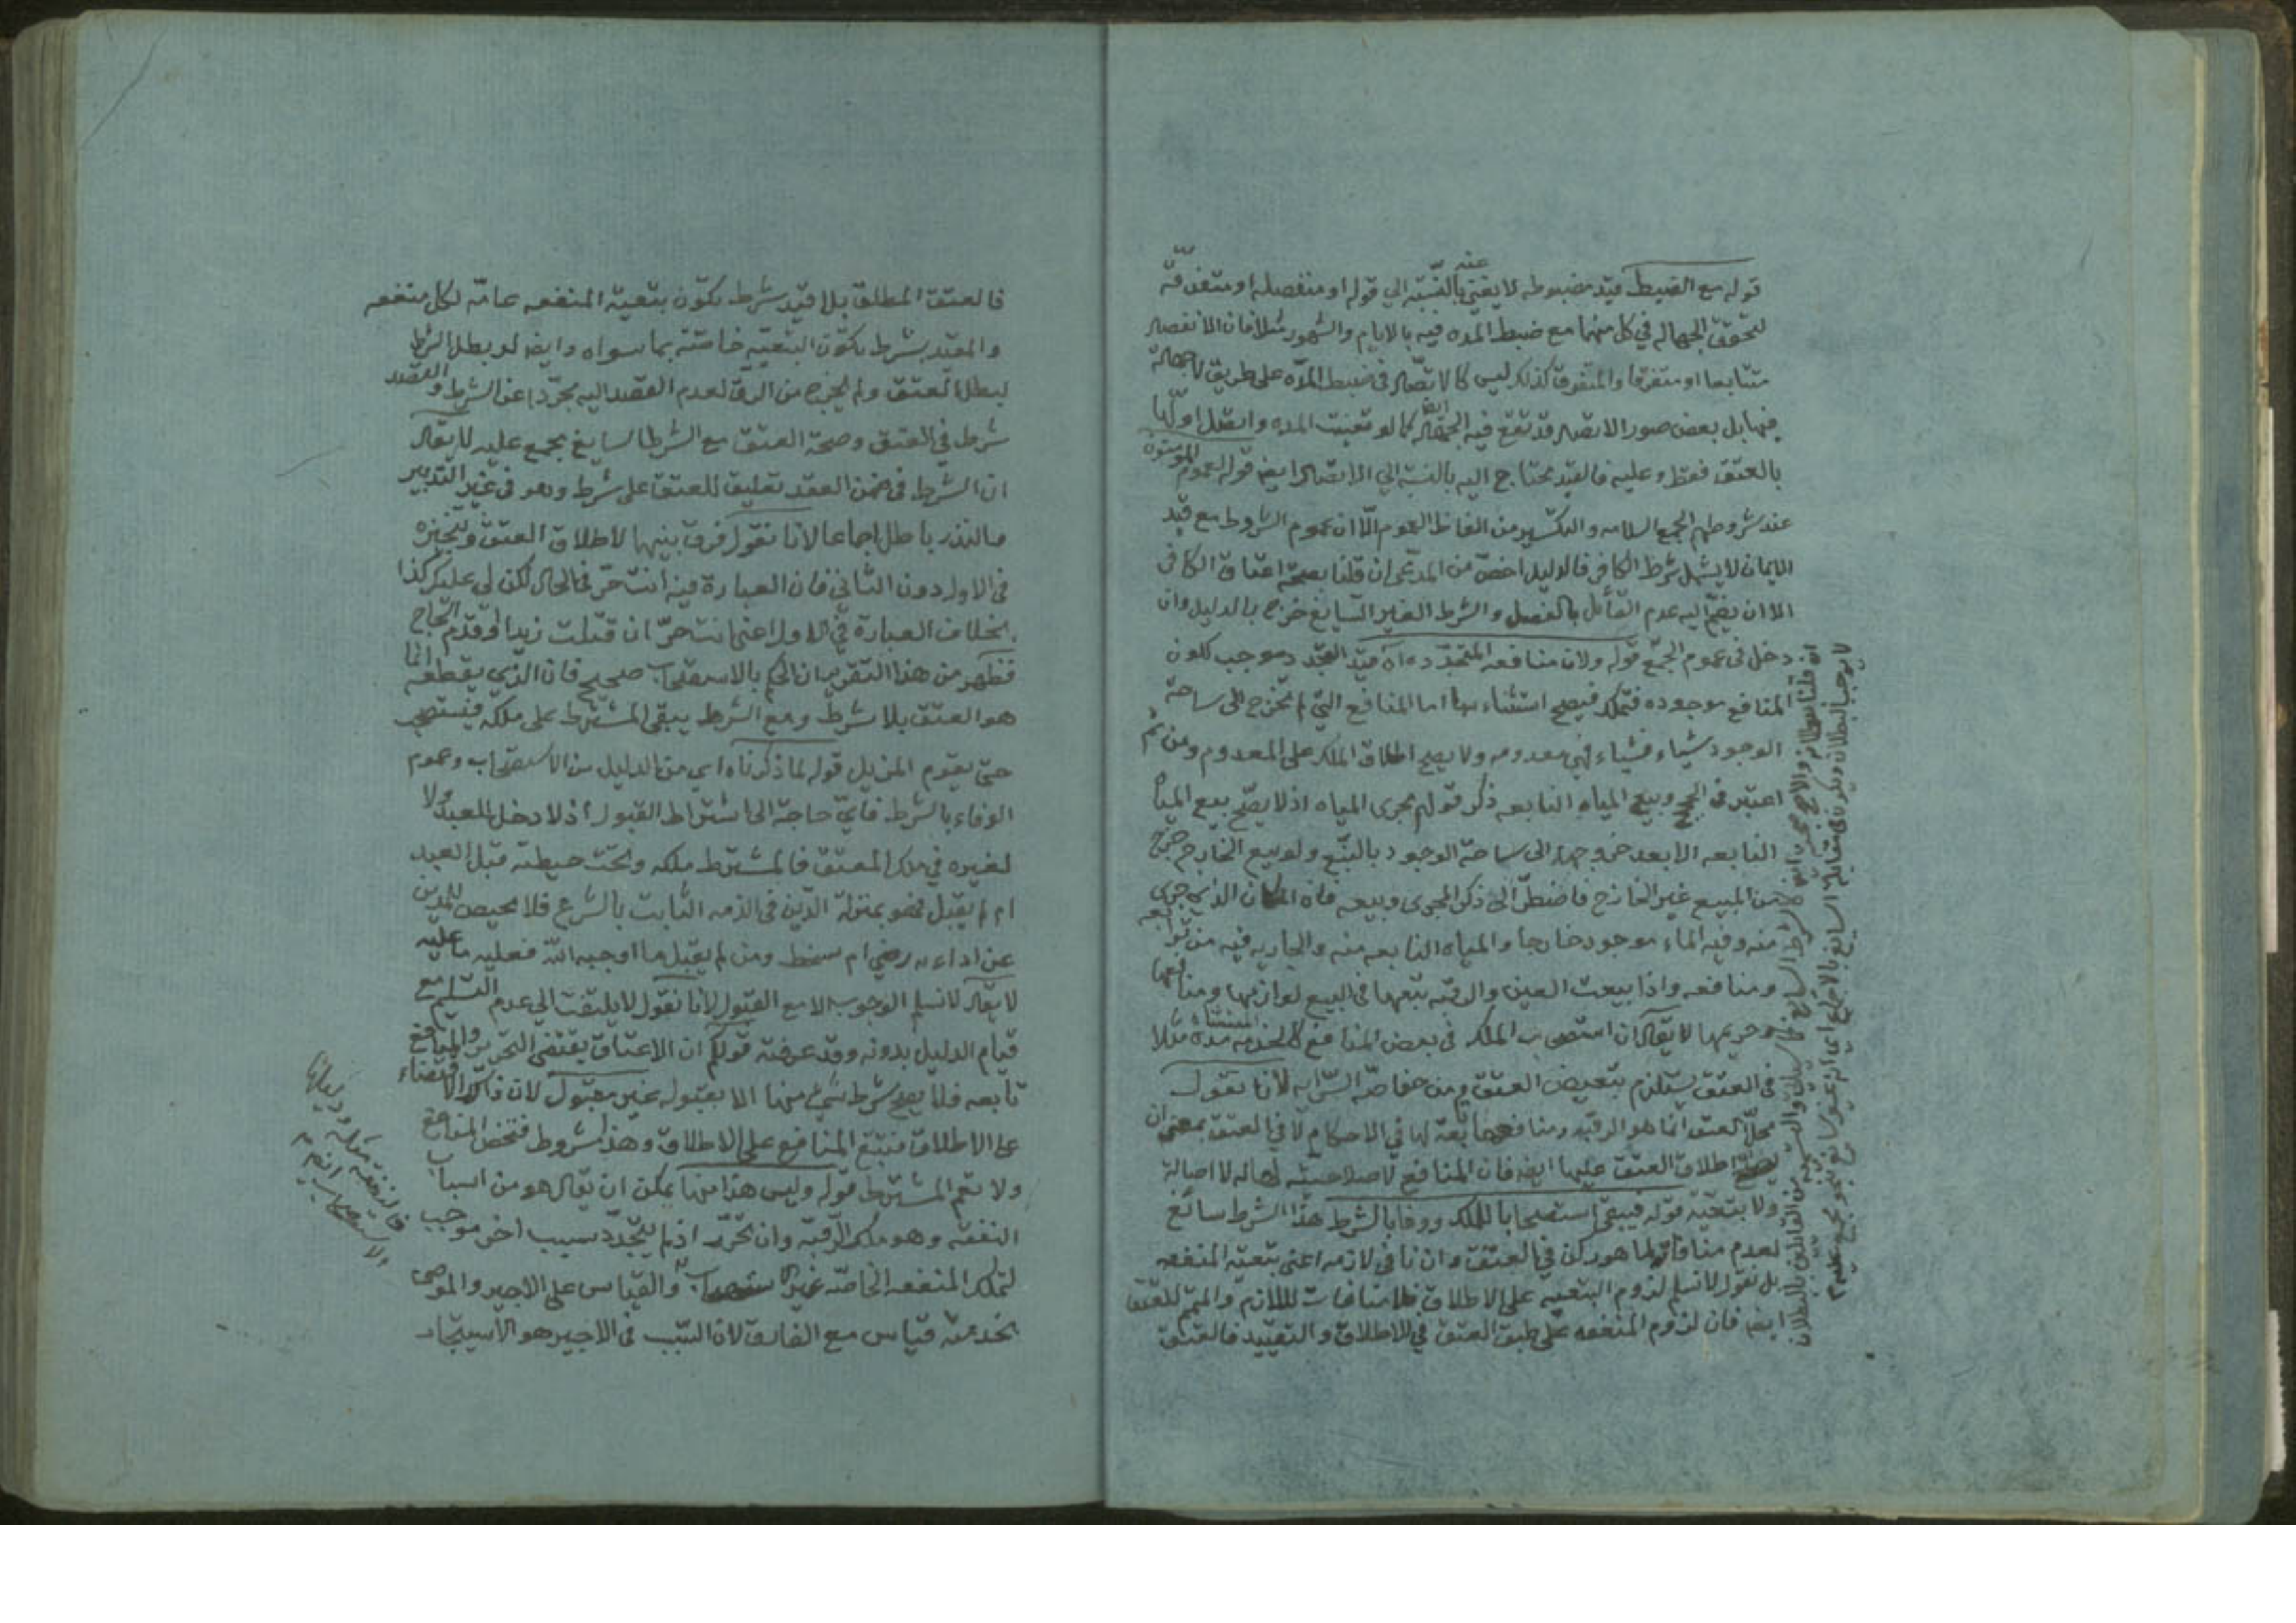 قوله مع الضبط قيد مضبوطه لا يغني عنه بالنسبة الي قوله او منفصله او متفرقة
لتحقق الجهاله في كل منهما مع ضبط المده فيه بالايام والشهور مثلا فان الانفصال
متتابعا او متفرقا والمتفرق كذلك ليس كالاتصال في ضبط المدة على طريق لا جهالة
فيها بل بعض صور الاتصال قد تقع فيه الجهالة ايضا كما لو تعينت المده واتصل اولها
بالعتق فقط وعليه فالقيد محتاج اليه بالنسبة الي الاتصال ايضا قوله لعموم المومنون
عند شروطهم الجمع السلامه والتكسير من الفاظ العموم الّا ان عموم الشروط مع قيد
الايمان لا يشمل شرط الكافر فالدليل اخصّ من المدعى ان قلنا بصحة اعتاق الكافر
الا ان يضم اليه عدم القائل بالفصل والشرط الغير السايغ خرج بالدليل وان
دخل في عموم الجمع قوله ولان منافعه المتجددة آه قيد موجب لكون
المنافع موجوده فتملك فيصح استثناءها اما المنافع التي لم تخرج الى ساحة
الوجود شياء فشياء فهي معدومه ولا يصح اطلاق الملك على المعدوم ومن ثم
اعتبر في بيع المياه النابعه ذكر قولهم مجرى المياه اذ لا يصح بيع المياه
النابعه الا بعد خروجها الى ساحة الوجود بالتبع ولو بيع الخارج خرج
من المبيع غير الخارج فاضطر الى ذكر المجرى وبيعه فان المكان الذي جرى
منه وفيه الماء موجود خارجا والمياه النابعه منه والجاريه فيه من توابعه
ومنافعه واذا بيعت العين والرقبه يتبعها في البيع لوازمها ومنافعها
وحريمها لا يقال ان استصحاب الملك في بعض المنافع كالخدمه المستثناة مدة مثلا
في العتق يستلزم بتعيض العتق ومن خاصة السراية لانا نقول
محل العتق انما هو الرقبه ومنافعها تابعة لها في الاحكام لا في العتق بمعنى ان
يصح اطلاق العتق عليها ايضا فان المنافع لا صلاحية لها له لا اصالة
ولا بتعية قوله فيبقى استصحابا للملك ووفا بالشرط هذا الشرط سائغ
لعدم منافاته لما هو ركن في العتق وان نافي لازمه اعني بتعية المنفعه
بل نقول لا نسلم لزوم التبعيه على الاطلاق فلا منافات لللازم والمتمم للعتق
ايضا فان لزوم المنفعه على طبق العتق في الاطلاق والتقييد فالعتق
فالعتق المطلق بلا قيد شرط يكون بتعية المنفعه عامة لكل منفعه
والمقيد بشرط يكون التبعية خاصة بما سواه وايضا لو بطل الشرط
لبطل العتق ولم يخرج من الرق لعدم القصد اليه مجردا عن الشرط والقصد
شرط في العتق وصحة العتق مع الشرط السايغ مجمع عليه لا يقال
ان الشرط في ضمن العقد تعليق للعتق على شرط وهو في غير التدبير
والنذر باطل اجماعا لانا نقول فرق بينهما لاطلاق العتق وتنجيزه
في الاول دون الثاني فان العبارة فيه انت حر في الحال لكن لي عليك كذا
بخلاف العبارة في الاول اعني انت حر ان قتلت زيدا او قدم الحاج
فظهر من هذا التقرير ان الحكم بالاستصحاب صحيح فان الذي يقطعه انما
هو العتق بلا شرط ومع الشرط يبقى المشترط على ملكه فيستصحب
حتى يقوم المزيل قوله لما ذكرناه اي من الدليل من الاستصحاب وعموم
الوفاء بالشرط فاي حاجة الى اشتراط القبول اذ لا دخل للعبد ولا
لغيره في ملك المعتق فالمشترط ملكه وتحت حيطته قبل العبد
ام لم يقبل فهو بمنزلة الدين في الذمه الثابت بالشرع فلا محيص للمدين
عن اداءه رضي ام سخط ومن لم يقبل ما اوجبه الله فعليه ما عليه
لا يقال لا نسلم الوجوب الا مع القبول لانا نقول لا يلتفت الي عدم التسليم مع
قيام الدليل بدونه وقد عرفته قولكم ان الاعتاق يقتضي التحرير والمنافع
تابعه فلا يصح شرط شئ منها الا بقبوله غير مقبول لان ذلك الاقتضاء
على الاطلاق فتبتع المنافع على الاطلاق وهذا مشروط فتخص المنافع
ولا تعم المشترط قوله وليس هذا منها يمكن ان يقال هو من اسباب
النفقه وهو ملك الرقبه وان تحرر اذ لم يتجدد سبب اخر موجب
لتملك المنفعه الخاصة غير الاستصحاب والقياس على الاجير والموصى
بخدمته قياس مع الفارق لان السبب في الاجير هو الاستيجار
فالنفقة
والاستصحاب